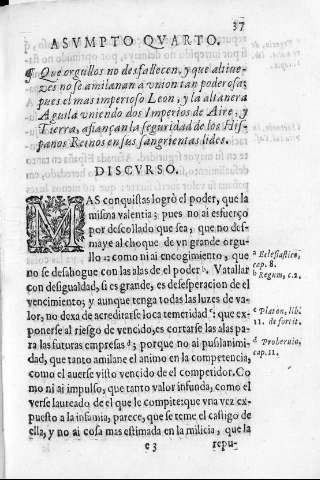 37
ASVMPTO QVARTO.
¶ Que orgullos no desfallecen, y que altiue-
zes no se amilanan a vnion tan poderosa;
pues el mas imperioso Leon, y la altanera
Aguila vniendo dos Imperios de Aire, y
Tierra, afiançan la seguridad de los His-
panos Reinos en sus sangrientas lides.
DISCVRSO.
MAS conquistas logrò el poder, que la
misma valentia; pues no ai esfuerço
por descollado que sea, que no des-
maye al choque de vn grande orgu-
llo a: como ni ai encogimiento, que
no se desahogue con las alas de el poder b. Vatallar
con desigualdad, si es grande, es desesperacion de el
vencimiento; y aunque tenga todas las luzes de va-
lor, no dexa de acreditarse loca temeridad c: que ex-
ponerse al riesgo de vencido, es cortarse las alas pa-
ra las futuras empresas d; porque no ai pusilanimi-
dad, que tanto amilane el animo en la competencia,
como el auerse visto vencido de el competidor. Co
mo ni ai impulso, que tanto valor infunda, como el
verse laureado de el que le compite: que vna vez ex-
puesto a la infamia, parece, que se teme el castigo de
ella, y no ai cosa mas estimada en la milicia, que la
e 3 repu-
a Eclesiastico,
cap. 8.
b Regum, c. 2.
c Platon, lib.
11. de forcit.
d Proberuio,
cap. 11.